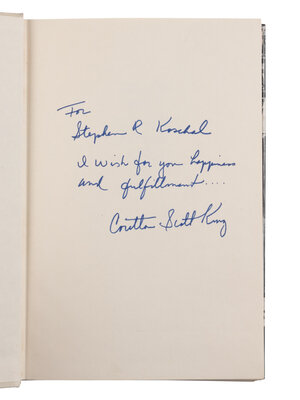 For
Stephen R Koschal
I wish for you happiness
and fulfillment....
Coretta Scott King